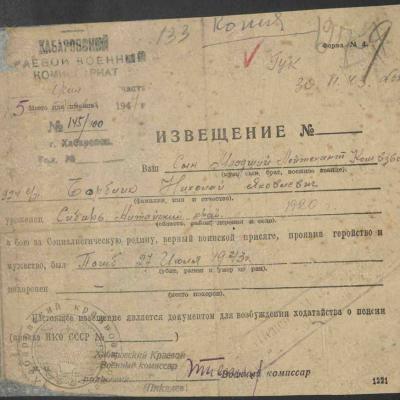 Копия
133
ХАБАРОВСКИЙ
КРАЕВОЙ ВОЕННЫЙ
КОМИССАРИАТ
Форма № 4.
часть
5
Место для штампа) 194
№ 145/100
г. Хабаровск.
Тел. №
ИЗВЕЩЕНИЕ №
Ваш Сын Младший Лейтенант Ком взвода
(муж, сын, брат, военное звание)
Николай Яковлевич
(фамилия, имя и отчество)
уроженец Сибирь Алтайский край 1920
(область, район, деревня и село)
в бою за Социалистическую родину, верный воинской присяге, проявив геройство и
мужество, был Погиб 27 Июля 1943г.
(убит, ранен и умер от ран)
похоронен
(место похорон)
Настоящее извещение является документом для возбуждения ходатайства о пенсии
(приказ НКО СССР № )
Хабаровский Краевой
Военный комиссар
Военный комиссар
1221